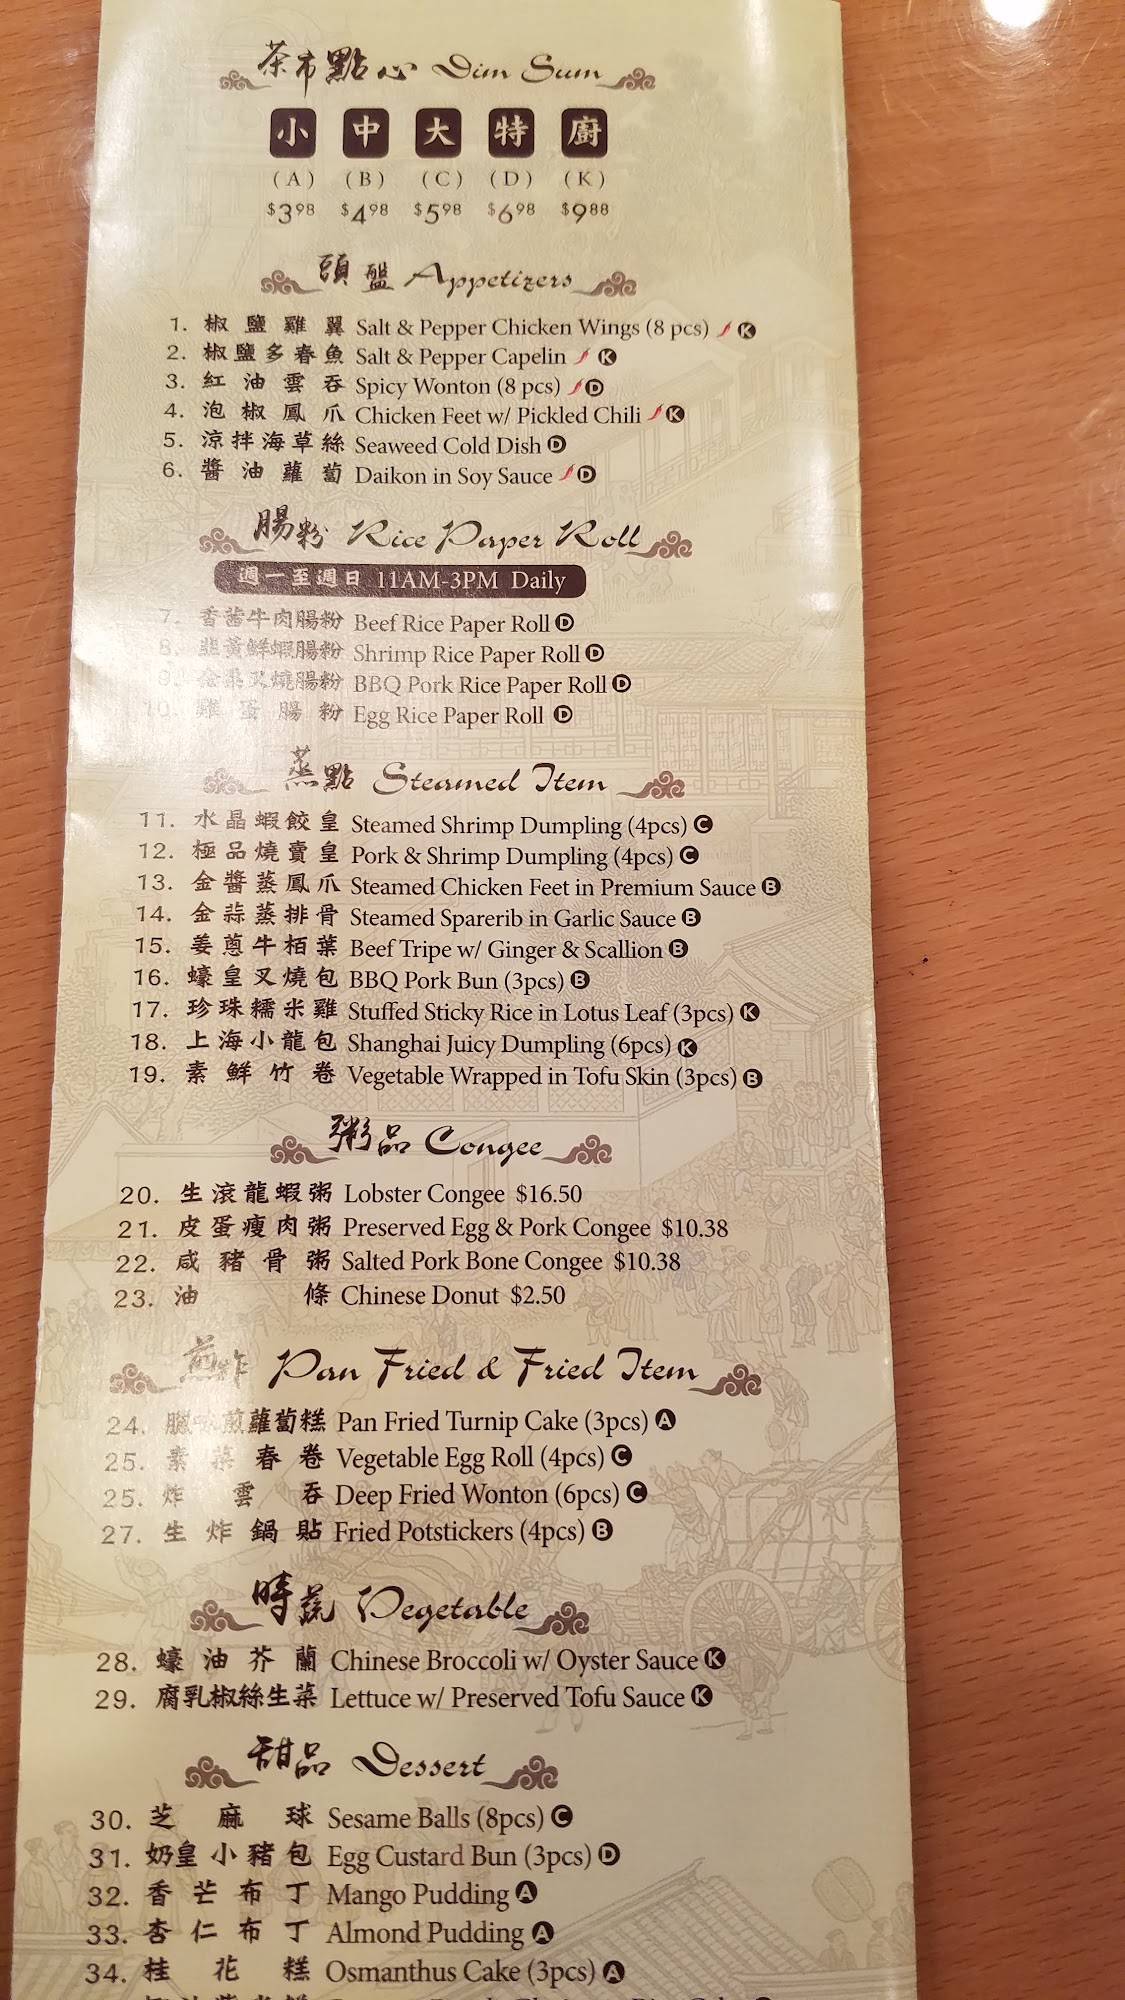 茶市點心 Dim Sum
小 中 大 特 廚
(A) (B) (C) (D) (K)
$3.98 $4.98 $5.98 $6.98 $9.88
頭盤 Appetizers
1. 椒鹽雞翼 Salt & Pepper Chicken Wings (8 pcs) K
2. 椒鹽多春魚 Salt & Pepper Capelin K
3. 紅油雲吞 Spicy Wonton (8 pcs) D
4. 泡椒鳳爪 Chicken Feet w/ Pickled Chili K
5. 涼拌海草絲 Seaweed Cold Dish D
6. 醬油蘿蔔 Daikon in Soy Sauce D
腸粉 Rice Paper Roll
週一至週日 11AM-3PM Daily
7. 香茜牛肉腸粉 Beef Rice Paper Roll D
8. 韭黃鮮蝦腸粉 Shrimp Rice Paper Roll D
9. 叉燒腸粉 BBQ Pork Rice Paper Roll D
10. 雞蛋腸粉 Egg Rice Paper Roll D
蒸點 Steamed Item
11. 水晶蝦餃皇 Steamed Shrimp Dumpling (4pcs) C
12. 極品燒賣皇 Pork & Shrimp Dumpling (4pcs) C
13. 金醬蒸鳳爪 Steamed Chicken Feet in Premium Sauce B
14. 金蒜蒸排骨 Steamed Sparerib in Garlic Sauce B
15. 姜蔥牛栢葉 Beef Tripe w/ Ginger & Scallion B
16. 蠔皇叉燒包 BBQ Pork Bun (3pcs) B
17. 珍珠糯米雞 Stuffed Sticky Rice in Lotus Leaf (3pcs) K
18. 上海小龍包 Shanghai Juicy Dumpling (6pcs) K
19. 素鮮竹卷 Vegetable Wrapped in Tofu Skin (3pcs) B
粥品 Congee
20. 生滾龍蝦粥 Lobster Congee $16.50
21. 皮蛋瘦肉粥 Preserved Egg & Pork Congee $10.38
22. 咸豬骨粥 Salted Pork Bone Congee $10.38
23. 油條 Chinese Donut $2.50
煎炸 Pan Fried & Fried Item
24. 臘味煎蘿蔔糕 Pan Fried Turnip Cake (3pcs) A
25. 素菜春卷 Vegetable Egg Roll (4pcs) C
25. 炸雲吞 Deep Fried Wonton (6pcs) C
27. 生炸鍋貼 Fried Potstickers (4pcs) B
時蔬 Vegetable
28. 蠔油芥蘭 Chinese Broccoli w/ Oyster Sauce K
29. 腐乳椒絲生菜 Lettuce w/ Preserved Tofu Sauce K
甜品 Dessert
30. 芝麻球 Sesame Balls (8pcs) C
31. 奶皇小豬包 Egg Custard Bun (3pcs) D
32. 香芒布丁 Mango Pudding A
33. 杏仁布丁 Almond Pudding A
34. 桂花糕 Osmanthus Cake (3pcs) A